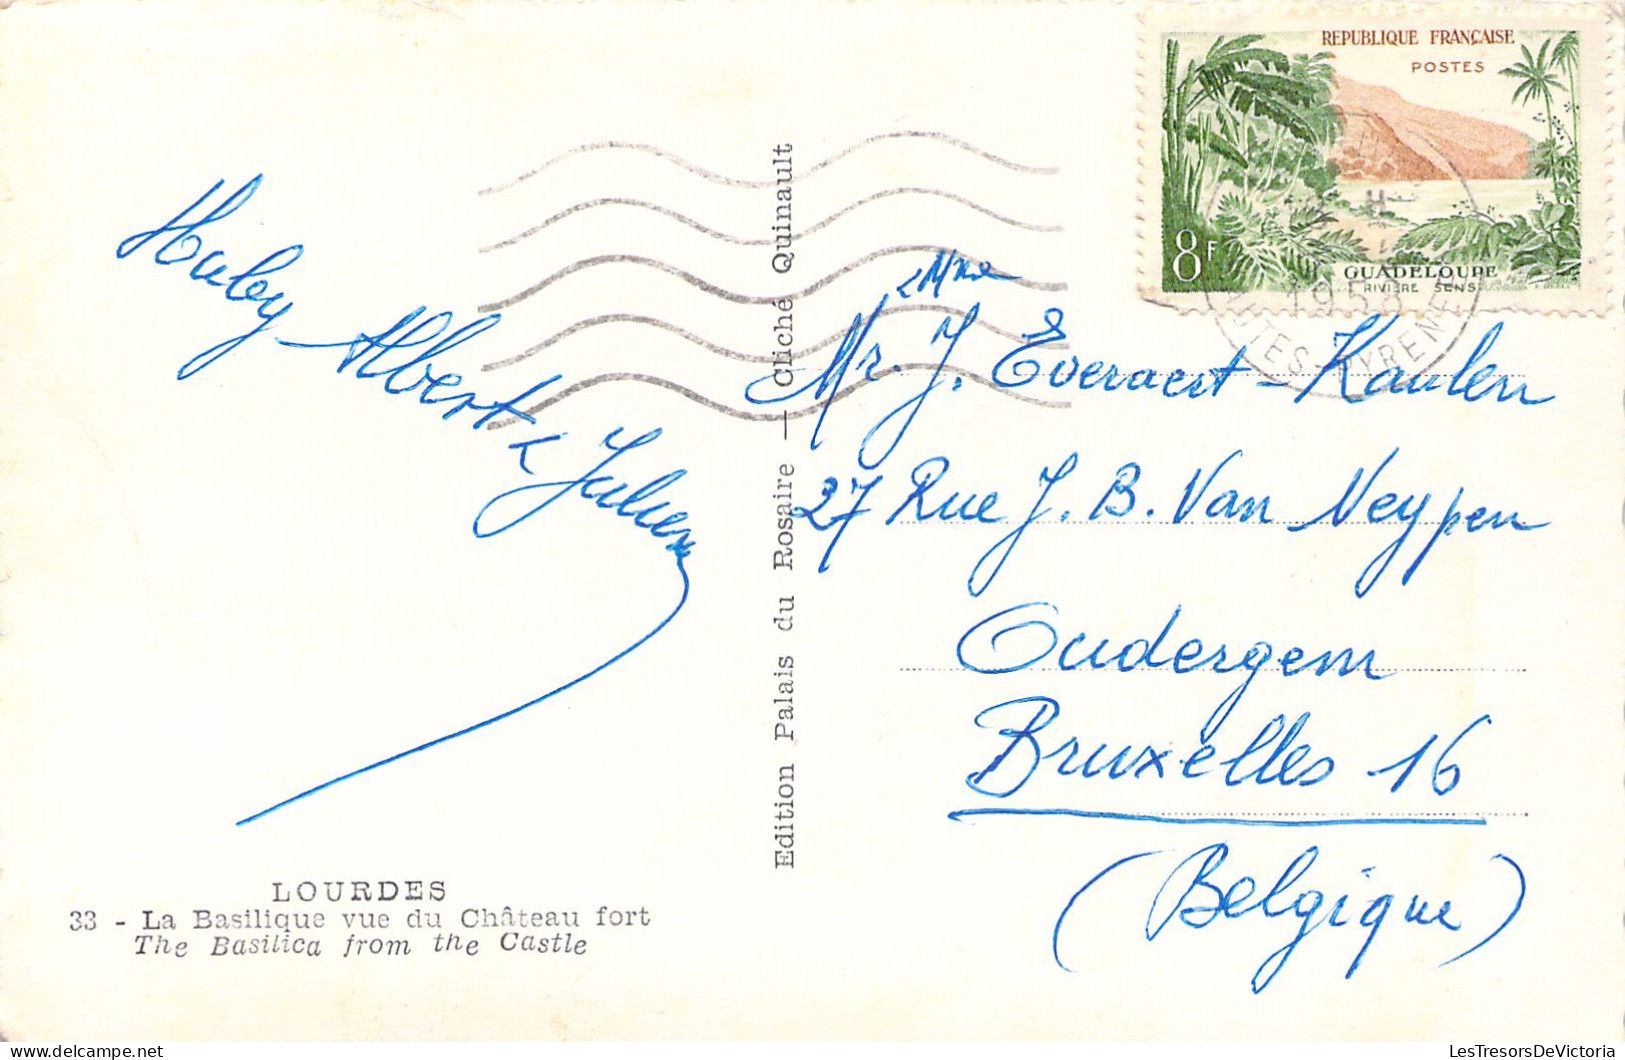 REPUBLIQUE FRANÇAISE
POSTES
8F
GUADELOUPE
RIVIÈRE SENS
1958
HAUTES PYRENEES
Huby
Albert & Julien
LOURDES
33 - La Basilique vue du Château fort
The Basilica from the Castle
Edition Palais du Rosaire — Cliché Quinault
& Mme
Mr. J. Everaert - Kaulen
27 Rue J. B. Van Neypen
Oudergem
Bruxelles 16
(Belgique)
LesTresorsDeVictoria